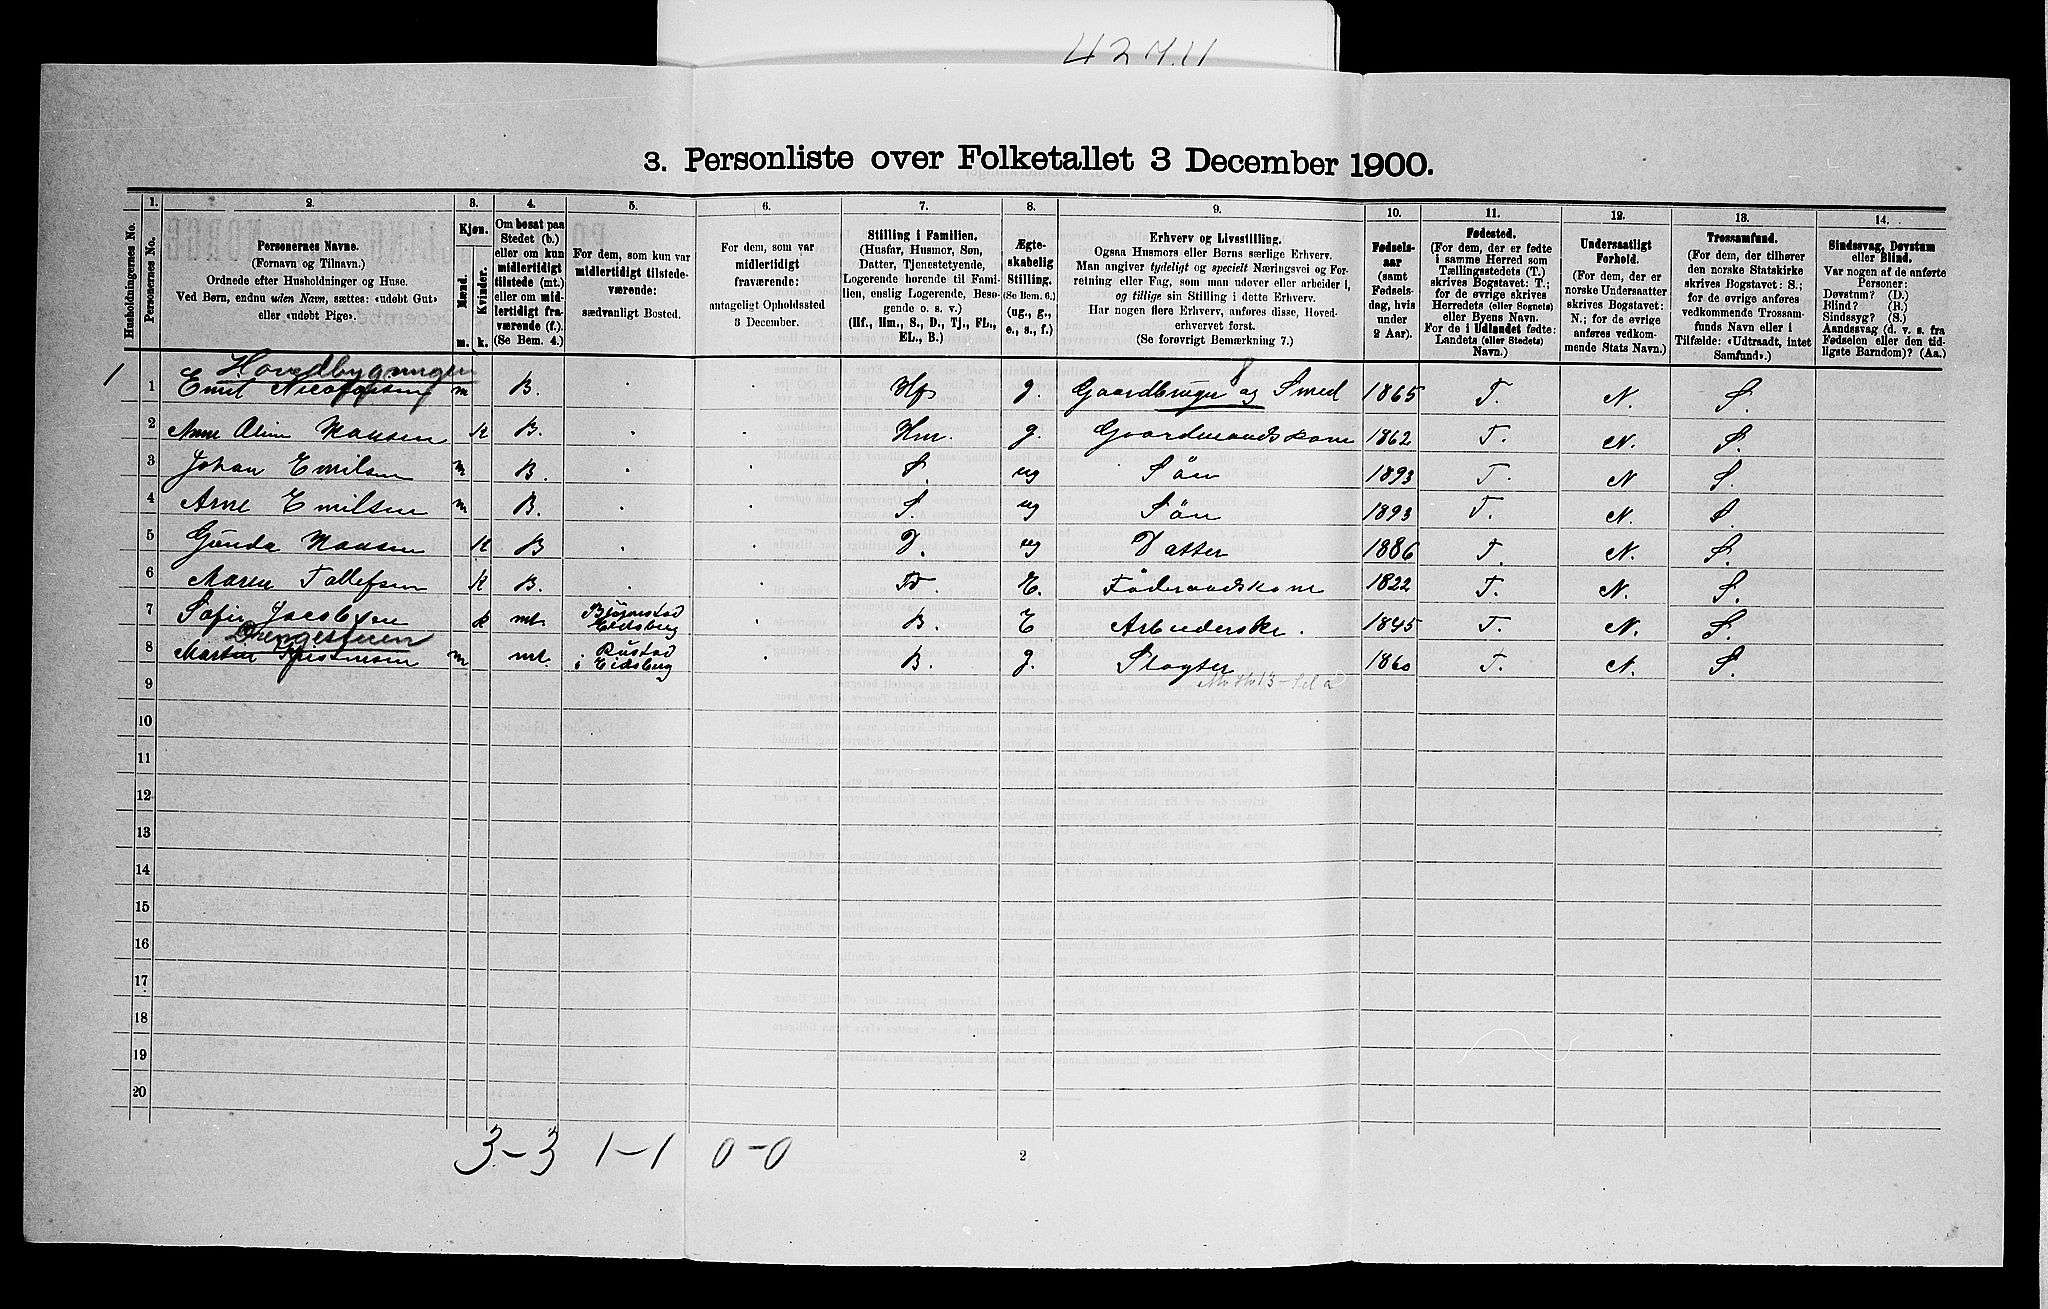 427.11
3. Personliste over Folketallet 3 December 1900.
Husholdningernes No.
1.
Personernes No.
2.
Personernes Navne.
(Fornavn og Tilnavn.)
Ordnede efter Husholdninger og Huse.
Ved Børn, endnu uden Navn, sættes: «udøbt Gut»
eller «udøbt Pige».
3.
Kjøn.
Mænd.
Kvinder.
m. k.
4.
Om bosat paa
Stedet (b.)
eller om kun
midlertidigt
tilstede (mt.)
eller om mid-
lertidigt fra-
værende (f.).
(Se Bem. 4.)
5.
For dem, som kun var
midlertidigt tilstede-
værende:
sædvanligt Bosted.
6.
For dem, som var
midlertidigt
fraværende:
antageligt Opholdssted
3 December.
7.
Stilling i Familien.
(Husfar, Husmor, Søn,
Datter, Tjenestetyende,
Logerende hørende til Fami-
lien, enslig Logerende, Besø-
gende o. s. v.)
(Hf., Hm., S., D., Tj., FL.,
EL., B.)
8.
Ægte-
skabelig
Stilling.
(Se Bem. 6.)
(ug., g.,
e., s., f.)
9.
Erhverv og Livsstilling.
Ogsaa Husmors eller Børns særlige Erhverv.
Man angiver tydeligt og specielt Næringsvei og For-
retning eller Fag, som man udøver eller arbeider i,
og tillige sin Stilling i dette Erhverv.
Har nogen flere Erhverv, anføres disse, Hoved-
erhvervet først.
(Se forøvrigt Bemærkning 7.)
10.
Fødsels-
aar
(samt
Fødsels-
dag, hvis
under
2 Aar).
11.
Fødested.
(For dem, der er fødte
i samme Herred som
Tællingsstedets (T.)
skrives Bogstavet: T.;
for de øvrige skrives
Herredets (eller Sognets)
eller Byens Navn.
For de i Udlandet fødte:
Landets (eller Stedets)
Navn.)
12.
Undersaatligt
Forhold.
(For dem, der er
norske Undersaatter
skrives Bogstavet:
N.; for de øvrige
anføres vedkom-
mende Stats Navn.)
13.
Trossamfund.
(For dem, der tilhører
den norske Statskirke
skrives Bogstavet: S.;
for de øvrige anføres
vedkommende Trossam-
funds Navn eller i
Tilfælde: «Udtraadt, intet
Samfund».)
14.
Sindssvag, Døvstum
eller Blind.
Var nogen af de anførte
Personer:
Døvstum? (D.)
Blind? (B.)
Sindssyg? (S.)
Aandssvag (d. v. s. fra
Fødselen eller den tid-
ligste Barndom)? (Aa.)
Hovedbygningen
1 1 m B. Hf. g. Gaardbruger og Smed 1865 T. N. S.
2 Anne Oline Hansen K B. Hm. g. Gaardmandskone 1862 T. N. S.
3 Johan Emilsen m B. S. ug Sön 1893 T. N S.
4 Arne Emilsen m B. S. ug Sön 1893 T. N. S.
5 Gunda Hansen K B D. ug Datter 1886 T. N. S.
6 Maren Tollefsen K B. E. Föderaadskone 1822 T. N. S.
7 Sofie Jacobsen k mt. Bjørnestad Eidsberg B. E 1845 T. N. S.
Drengestuen
8 Martin Kristiansen m mt. Rustad i Eidsberg B. g. Slagter 1860 T. N. S.
9
10
11
12
13
14
15
16
17
18
19
20
3-3 1-1 0-0
2